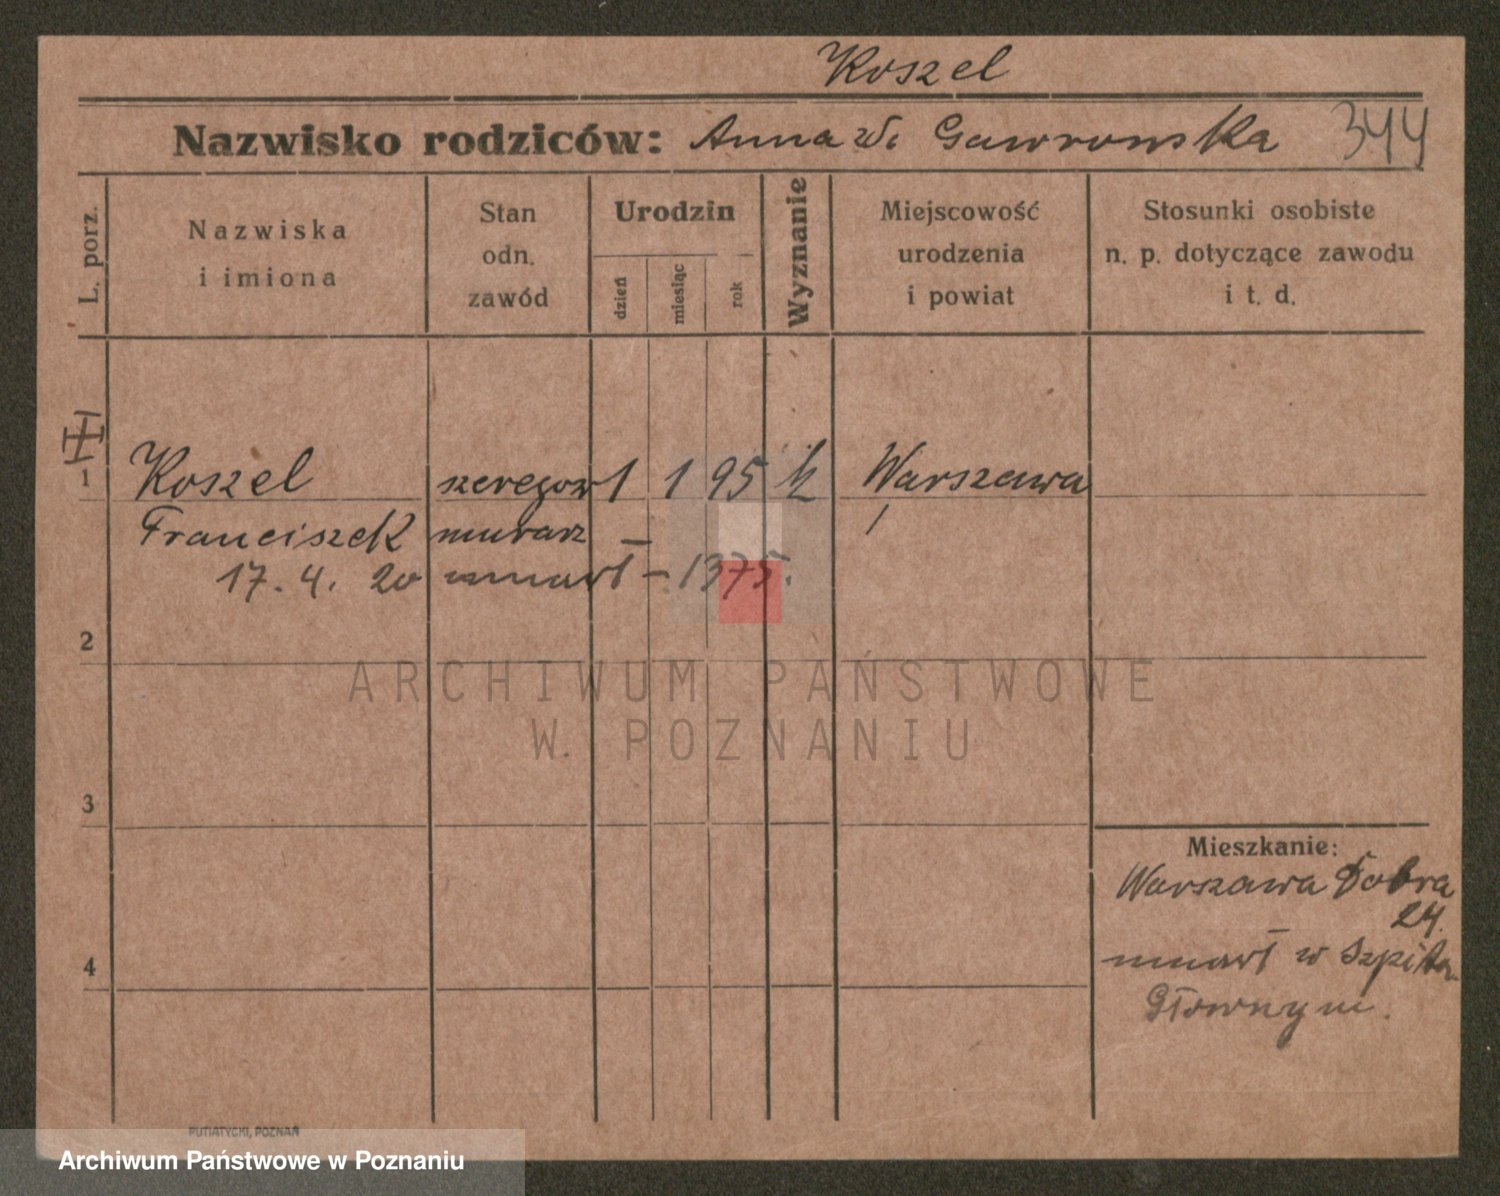 Koszel
Nazwisko rodziców: Anna zd. Gawrowska 344
L. porz.
Nazwiska
i imiona
Stan
odn.
zawód
Urodzin
dzień
miesiąc
rok
Wyznanie
Miejscowość
urodzenia
i powiat
Stosunki osobiste
n. p. dotyczące zawodu
i t. d.
1 Koszel szeregow 1 1 95 k Warszawa
Franciszek murarz
17. 4. 20 umarł – 1375.
2
ARCHIWUM PAŃSTWOWE
W POZNANIU
3
Mieszkanie:
Warszawa Dobra
24.
4
umarł w Szpital.
Głownym.
PUTIATYCKI, POZNAŃ
Archiwum Państwowe w Poznaniu